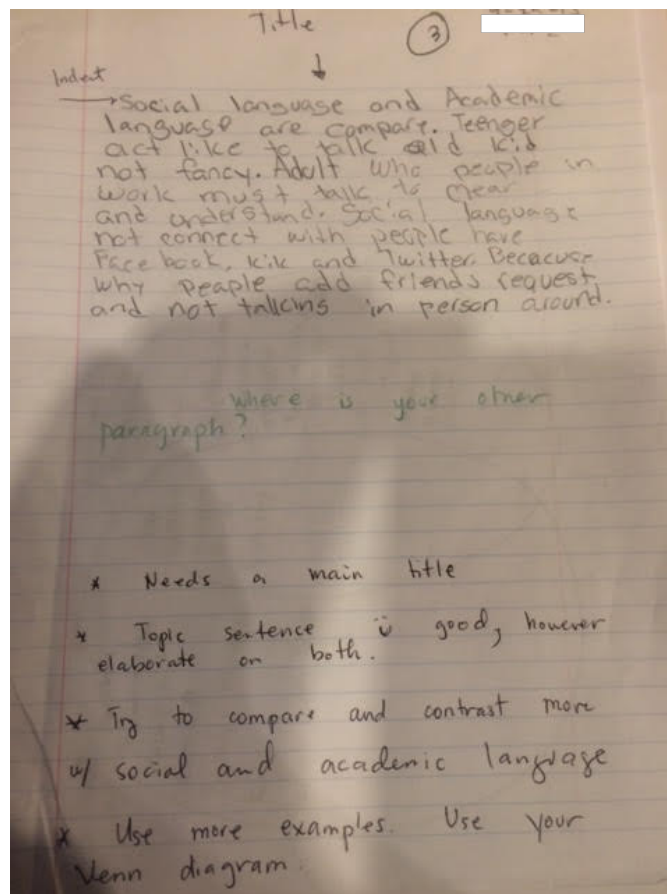 Title
3
Indent
Social language and Academic
language are compare. Teenger
act like to talk old kid
not fancy. Adult who people in
work must talk to clear
and understand. Social language
not connect with people have
Facebook, kik and Twitter. Becacuse
why people add friends request
and not talking in person around.
where is your other
paragraph?
* Needs a main title
* Topic sentence is good, however
elaborate on both.
* Try to compare and contrast more
w/ social and academic language
* Use more examples. Use your
Venn diagram.